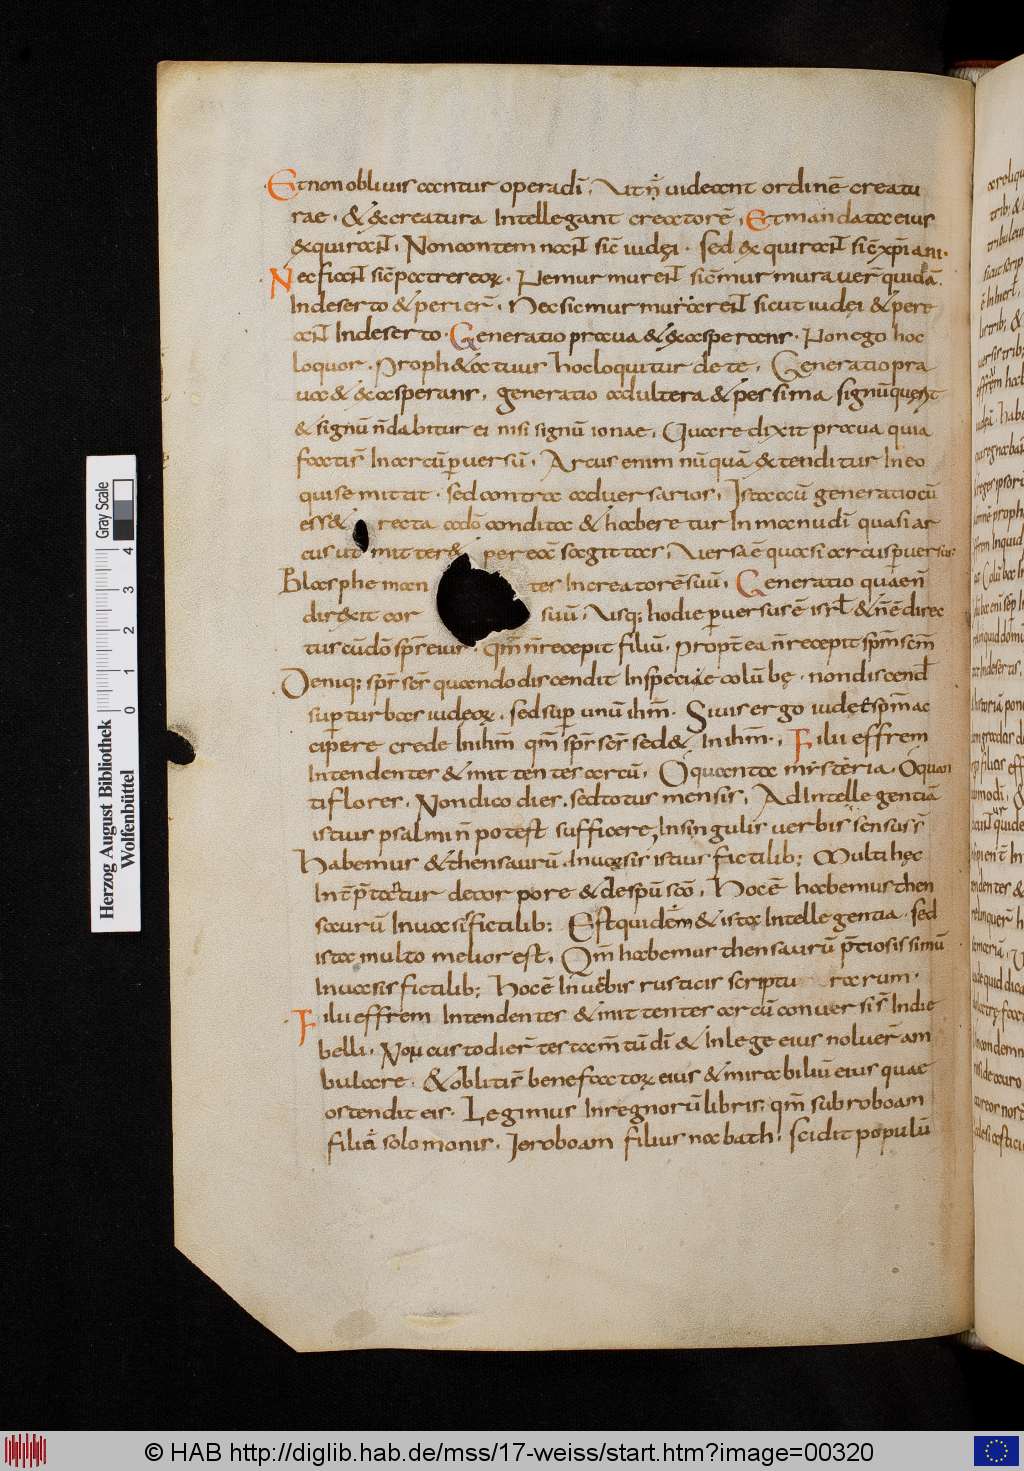 Et non obliuiscantur operā dī. Ut ñ uideant ordinē creatu
rae. & ex creatura intellegant creatorē. Et mandata eius
exquirant. Non contemnant sic̄ iudęi. sed exquirant sic̄ xp̄iani.
Nec fiant sic̄ patres eorꝝ. Ne murmurent sic̄ murmurauer̄ quidā
In deserto & perier̄. Nec sic murmurarent sicut iudęi & pere
ant In deserto. Generatio praua & exasperans. Non ego hoc
loquor. Propheta tuus hoc loquitur de te. Generatio pra
ua & exasperans. generatio adultera & pessima signū quęrit
& signū ñ dabitur ei nisi signū ionae. Quare dixit praua quia
facta est In arcū puersū. Arcus enim nūquā extenditur In eo
qui se mittit. sed contra aduersarios. Ista cū generatio cū
ess& recta ad dō condita & haberetur In manu dī quasi ar
cus ut mitter& per eā sagittas. Uersa ē quasi arcus puersus.
Blaspheman tes In creatorē suū. Generatio quae ñ
direxit cor suū. Usq; hodie puersus ē isrl & ñ ē direc
tus cū dō sps eius. qm̄ ñ recepit filiū. Propt̄ ea ñ recepit spm̄ scm̄
Deniq; sps scs quando discendit In specie colūbę. non discend̄
sup turbas iudęorꝝ. sed sup unū ihm̄. Si uis ergo iudee spm̄ ac
cipere crede In ihm̄ qm̄ sps scs sed& In ihm̄. Filii effrem
Intendentes & mittentes arcū. O quanta mysteria. O quan
ti flores. Non dico dies. sed totus mensis. Ad Intellegentiā
istius psalmi ñ potest sufficere, In singulis uerbis sensus s̄
Habemus & thensaurū In uasis istius fictilib; Multi hęc
de corpore & de spū scō. Hoc ē habemus then
saurū In uasis fictilib; Est quidem & ista Intellegentia. sed
ista multo melior est. Qm̄ habemus thensaurū p̄tiosissimū
In uasis fictilib; Hoc ē In uerbis rusticis scriptu rarum.
Filii effrem Intendentes & mittentes arcū conuersi s̄ In die
belli. Non custodier̄ testam̄tū dī & In lege eius noluer̄ am
bulare. & obliti s̄ benefactorꝝ eius & mirabiliū eius quae
ostendit eis. Legimus In regnorū libris. qm̄ sub roboam
filiū solomonis. Ieroboam filius nabath. scidit populū
Herzog August Bibliothek
Wolfenbüttel
Gray Scale
0 1 2 3 4
© HAB http://diglib.hab.de/mss/17-weiss/start.htm?image=00320